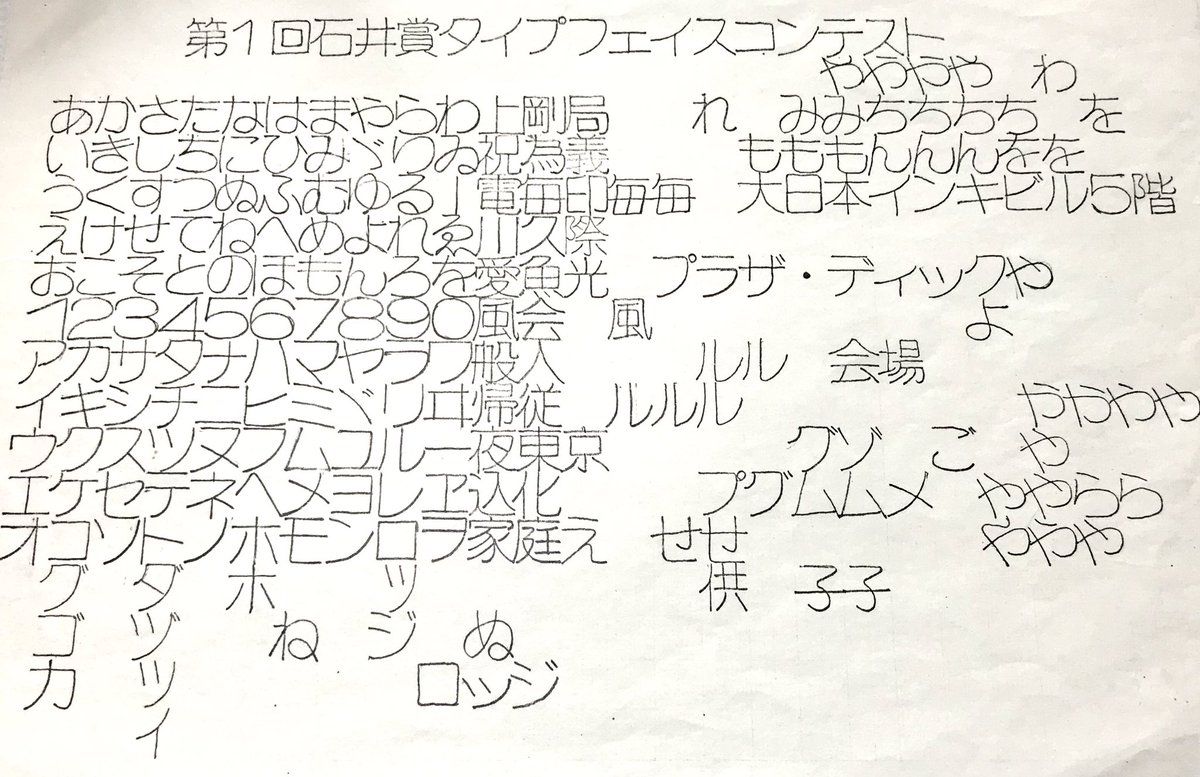 第1回石井賞タイプフェイスコンテスト
ややややわ
あかさたなはまやらわ上剛局 れ みみちちちち を
いきしちにひみゞりゐ祝為義 もももんんんをを
うくすつぬふむゆるー電毎印毎毎 大日本インキビル5階
えけせてねへめよれゑ川久際
おこそとのほもんろを愛魚光 プラザ・ディックや
1234567890風会 風 よ
アカサタナハマヤラワ般人 ルル 会場
イキシチニヒミヾリヰ帰従 ルルル やややや
ウクスツヌフムユルー夜東京 グソ ご や
エケセテネヘメヨレヱ込化 プグムムメ ややらら
オコソトノホモンロヲ家庭え せせ ややや
グ ダ ホ ツ 供 子子
ゴ ヅ ね ジ ぬ
カ ツ ロッジ
イ